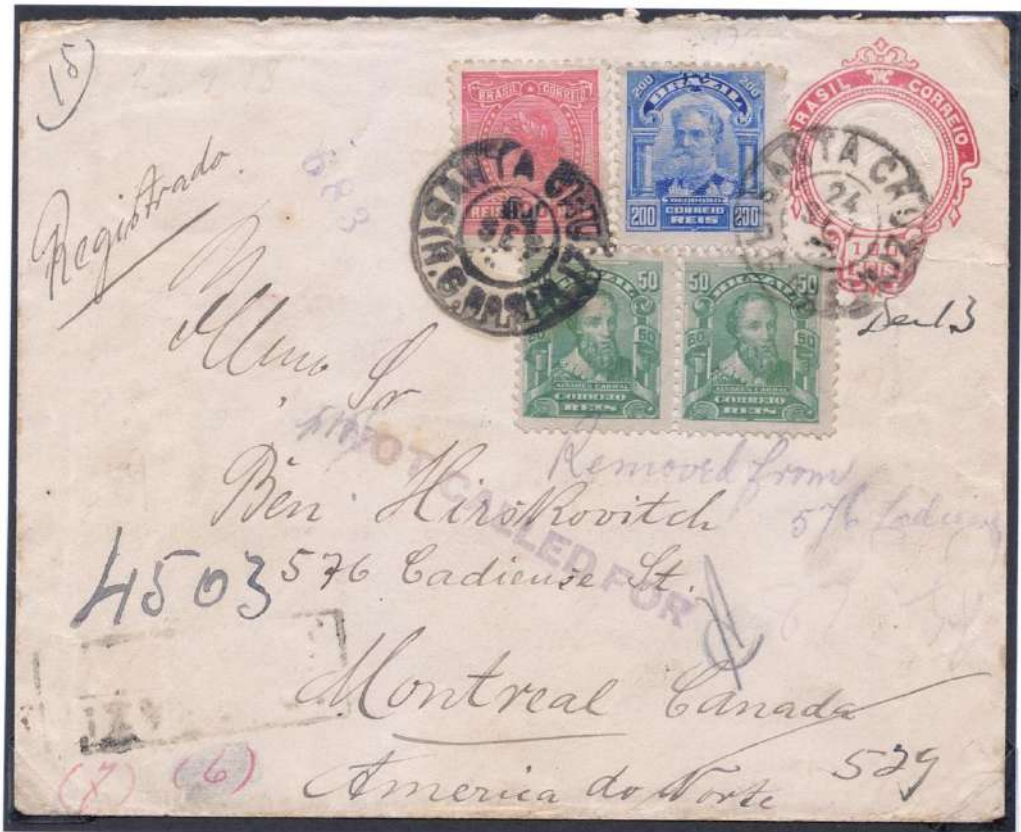 15
Registrado.
BRASIL CORREIO
REIS
200 200
BRAZIL
DEODORO
200 CORREIO 200
REIS
BRASIL CORREIO
100
SANTA CRUZ
SANTA CRUZ
24
50
BRAZIL
50 50
ALVARES CABRAL
CORREIO
REIS
50 BRAZIL 50
50 50
ALVARES CABRAL
CORREIO
REIS
Dec 13
Illmo Sr
NOT CALLED FOR
Removed from
576
Ben Hirskovitch
4503
576 Cadieuse St.
Montreal Canada
America do Norte
529
(7) (6)